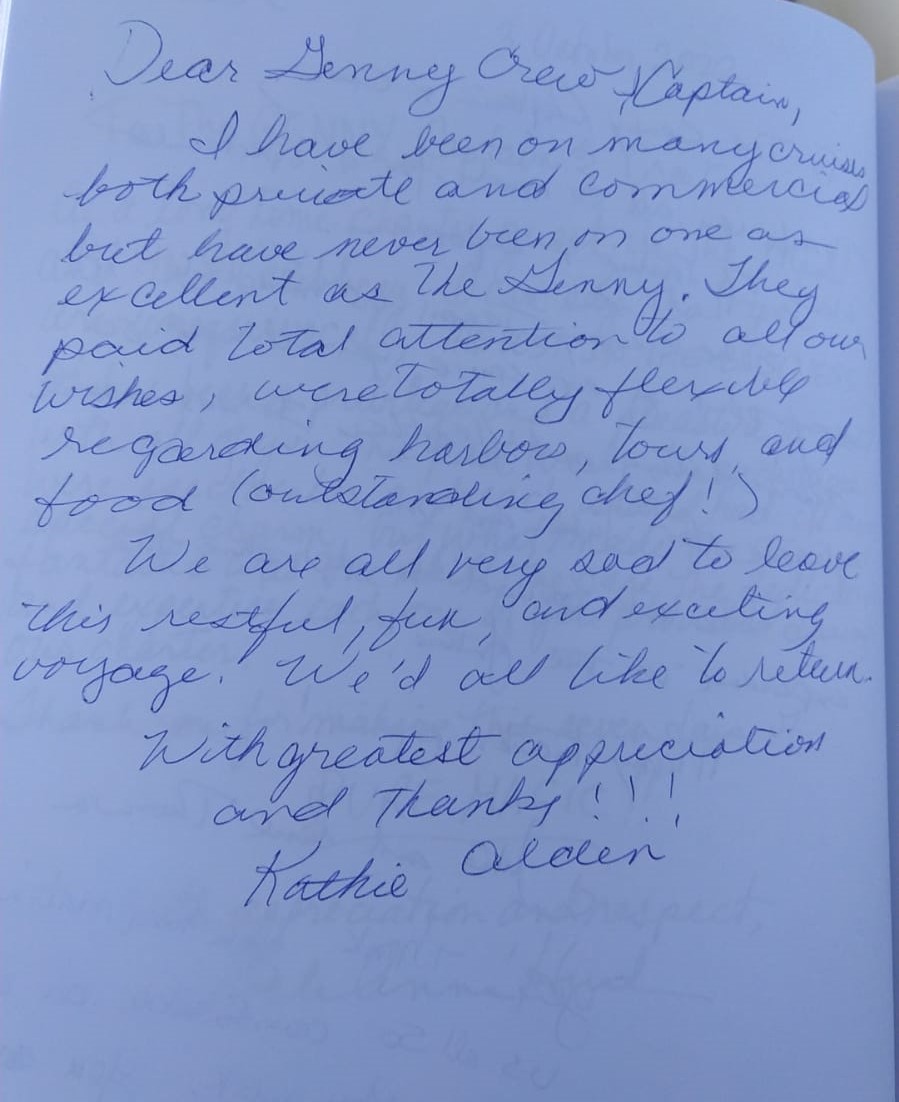 Dear Genny Crew & Captain,
I have been on many cruises
both private and commercial
but have never been on one as
excellent as the Genny. They
paid total attention to all our
wishes, were totally flexible
regarding harbors, tours, and
food (outstanding chef!)
We are all very sad to leave
this restful, fun, and exciting
voyage. We'd all like to return.
With greatest appreciation
and Thanks!!!
Kathie Alden